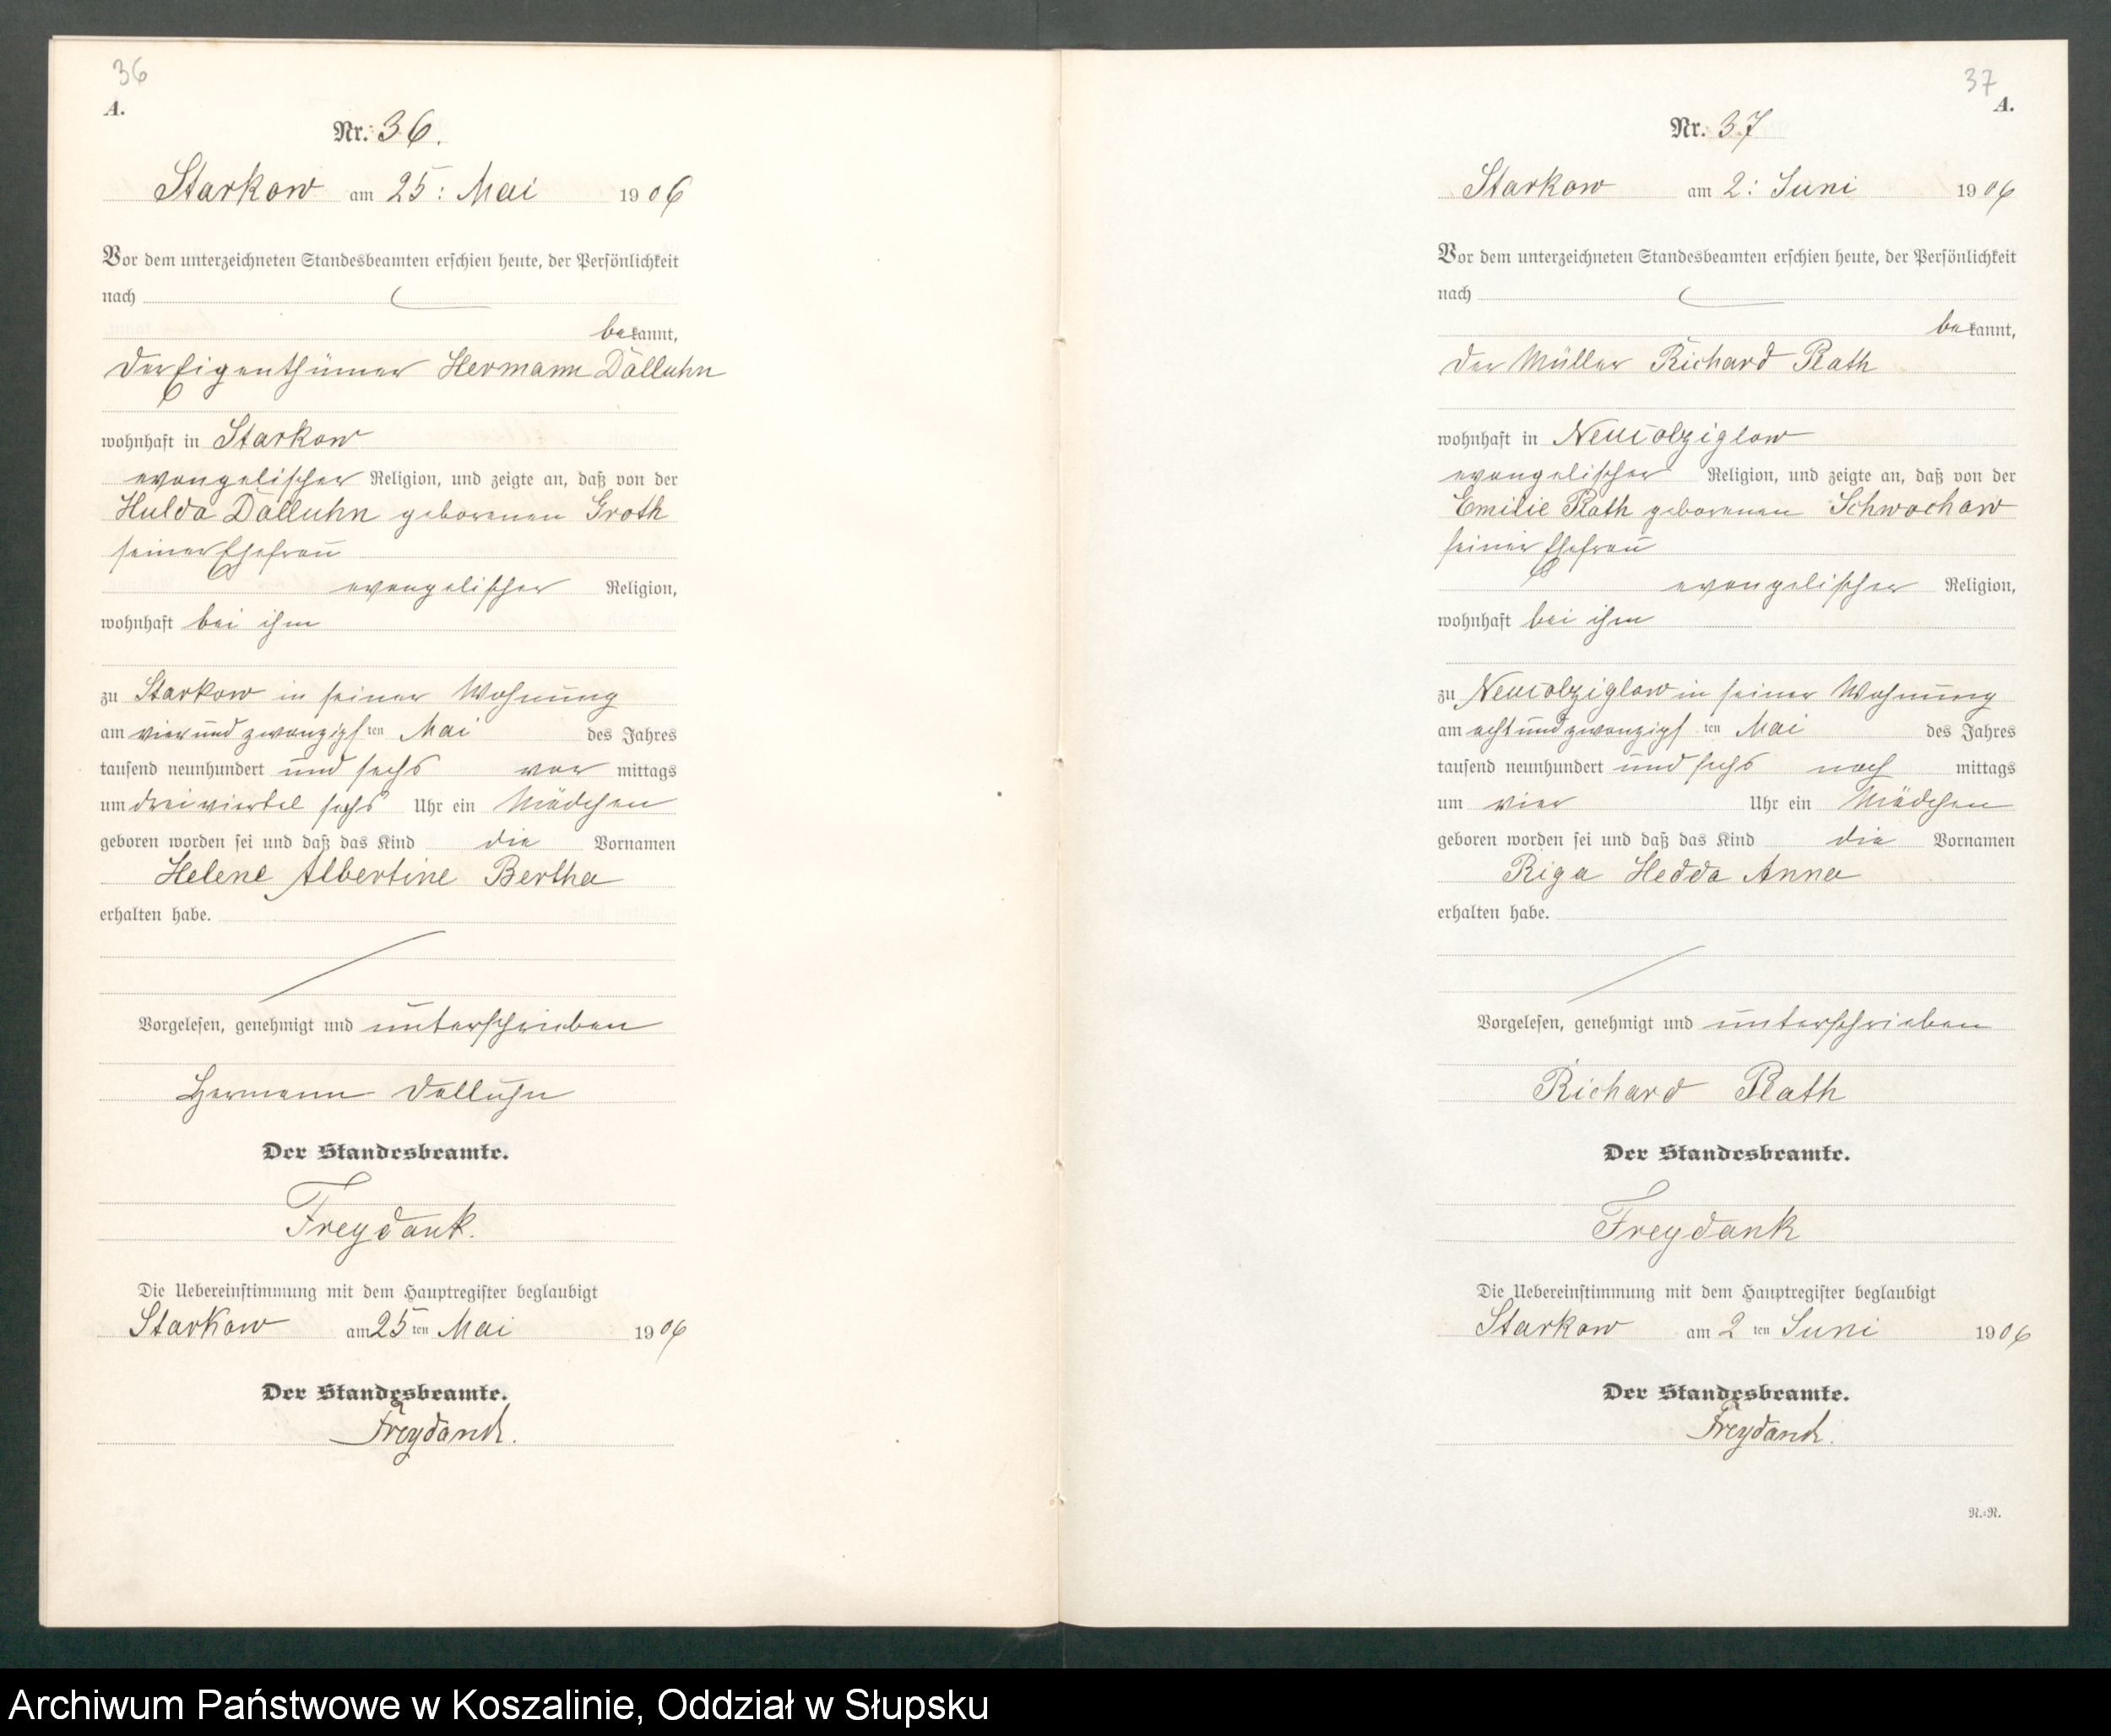 36
A.
Nr. 36.
Starkow am 25: Mai 1906
Vor dem unterzeichneten Standesbeamten erschien heute, der Persönlichkeit
nach
bekannt,
der Eigenthümer Hermann Dalluhn
wohnhaft in Starkow
evangelischer Religion, und zeigte an, daß von der
Hulda Dalluhn geborenen Groth
seiner Ehefrau
evangelischer Religion,
wohnhaft bei ihm
zu Starkow in seiner Wohnung
am vierundzwanzigsten Mai des Jahres
tausend neunhundert und sechs vormittags
um dreiviertel sechs Uhr ein Mädchen
geboren worden sei und daß das Kind die Vornamen
Helene Albertine Bertha
erhalten habe.
Vorgelesen, genehmigt und unterschrieben
Hermann Dalluhn
Der Standesbeamte.
Freydank.
Die Uebereinstimmung mit dem Hauptregister beglaubigt
Starkow am 25ten Mai 1906
Der Standesbeamte.
Freydank.
37
A.
Nr. 37
Starkow am 2: Juni 1906
Vor dem unterzeichneten Standesbeamten erschien heute, der Persönlichkeit
nach
bekannt,
der Müller Richard Plath
wohnhaft in
evangelischer Religion, und zeigte an, daß von der
Emilie Plath geborenen Schwochow
seiner Ehefrau
evangelischer Religion,
wohnhaft bei ihm
zu in seiner Wohnung
am achtundzwanzigsten Mai des Jahres
tausend neunhundert und sechs nachmittags
um vier Uhr ein Mädchen
geboren worden sei und daß das Kind die Vornamen
Riga Hedda Anna
erhalten habe.
Vorgelesen, genehmigt und unterschrieben
Richard Plath
Der Standesbeamte.
Freydank
Die Uebereinstimmung mit dem Hauptregister beglaubigt
Starkow am 2ten Juni 1906
Der Standesbeamte.
Freydank.
N.=N.
Archiwum Państwowe w Koszalinie, Oddział w Słupsku